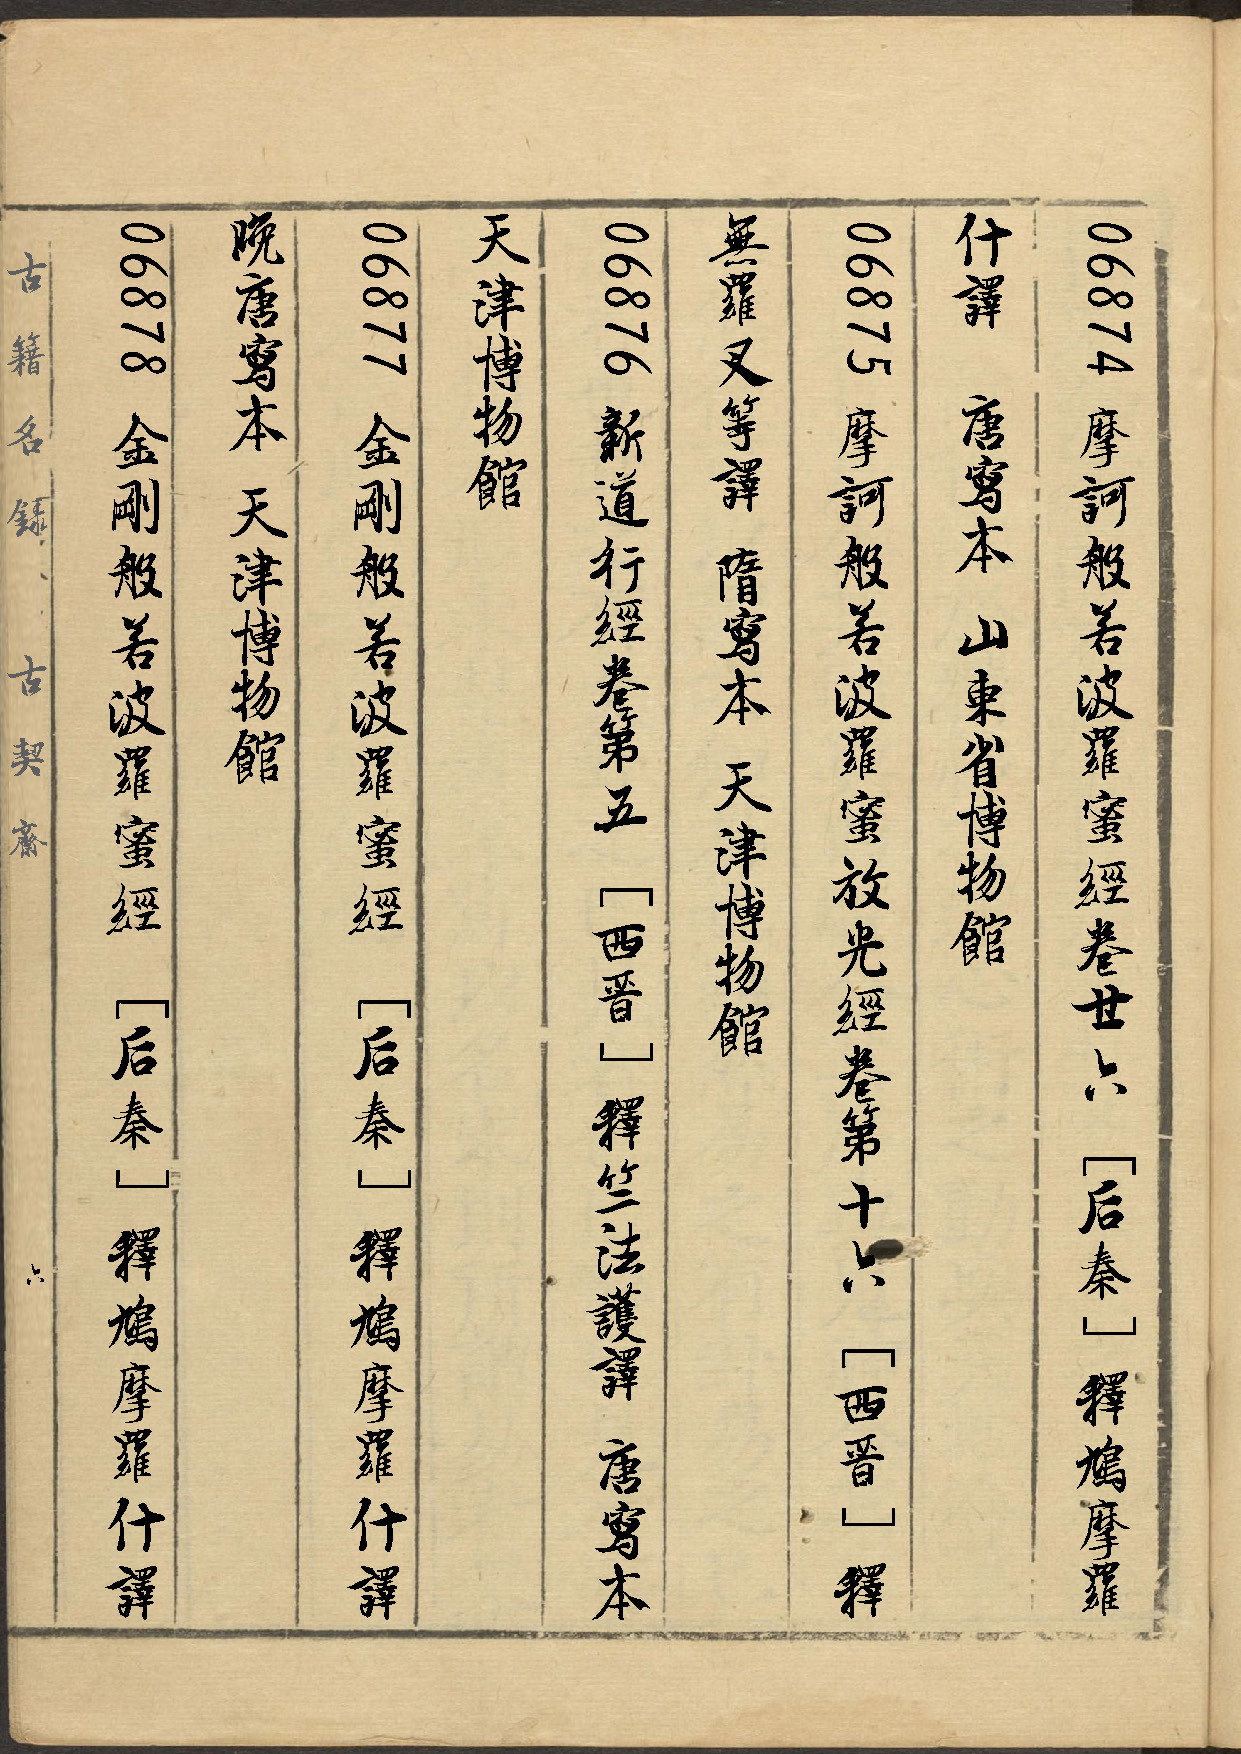 06874 摩訶般若波羅蜜經卷廿六 [后秦] 釋鳩摩羅
什譯 唐寫本 山東省博物館
06875 摩訶般若波羅蜜放光經卷第十六 [西晉] 釋
無羅叉等譯 隋寫本 天津博物館
06876 新道行經卷第五 [西晉] 釋竺法護譯 唐寫本
天津博物館
06877 金剛般若波羅蜜經 [后秦] 釋鳩摩羅什譯
晚唐寫本 天津博物館
06878 金剛般若波羅蜜經 [后秦] 釋鳩摩羅什譯
古籍名録、、古契齋
六